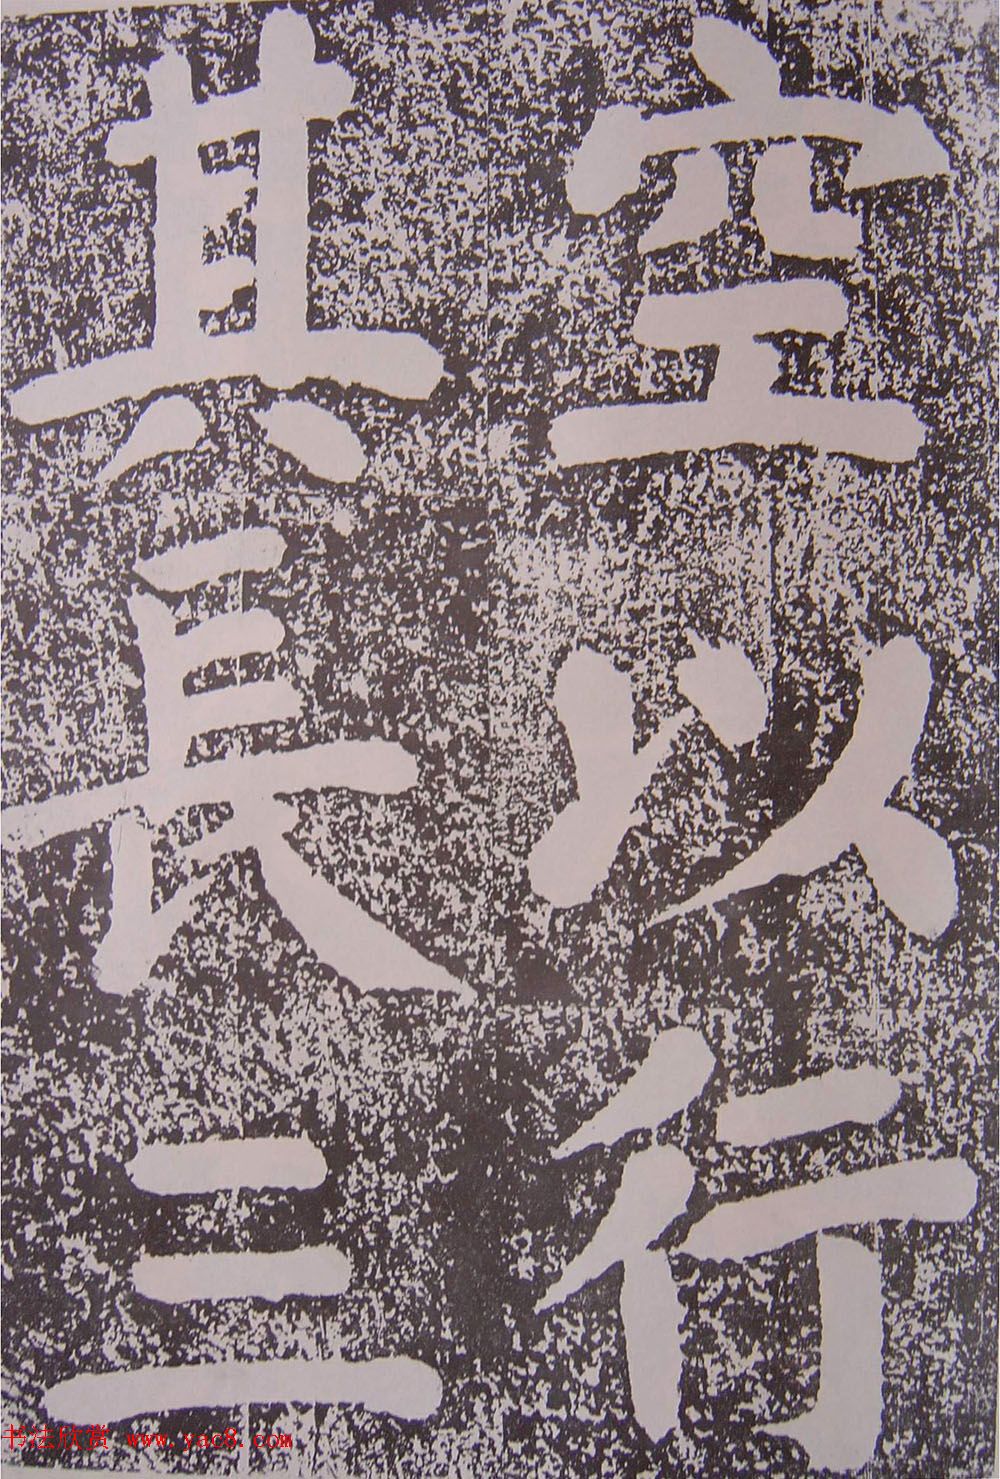 空以行
其長三
书法欣赏 www.yac8.com